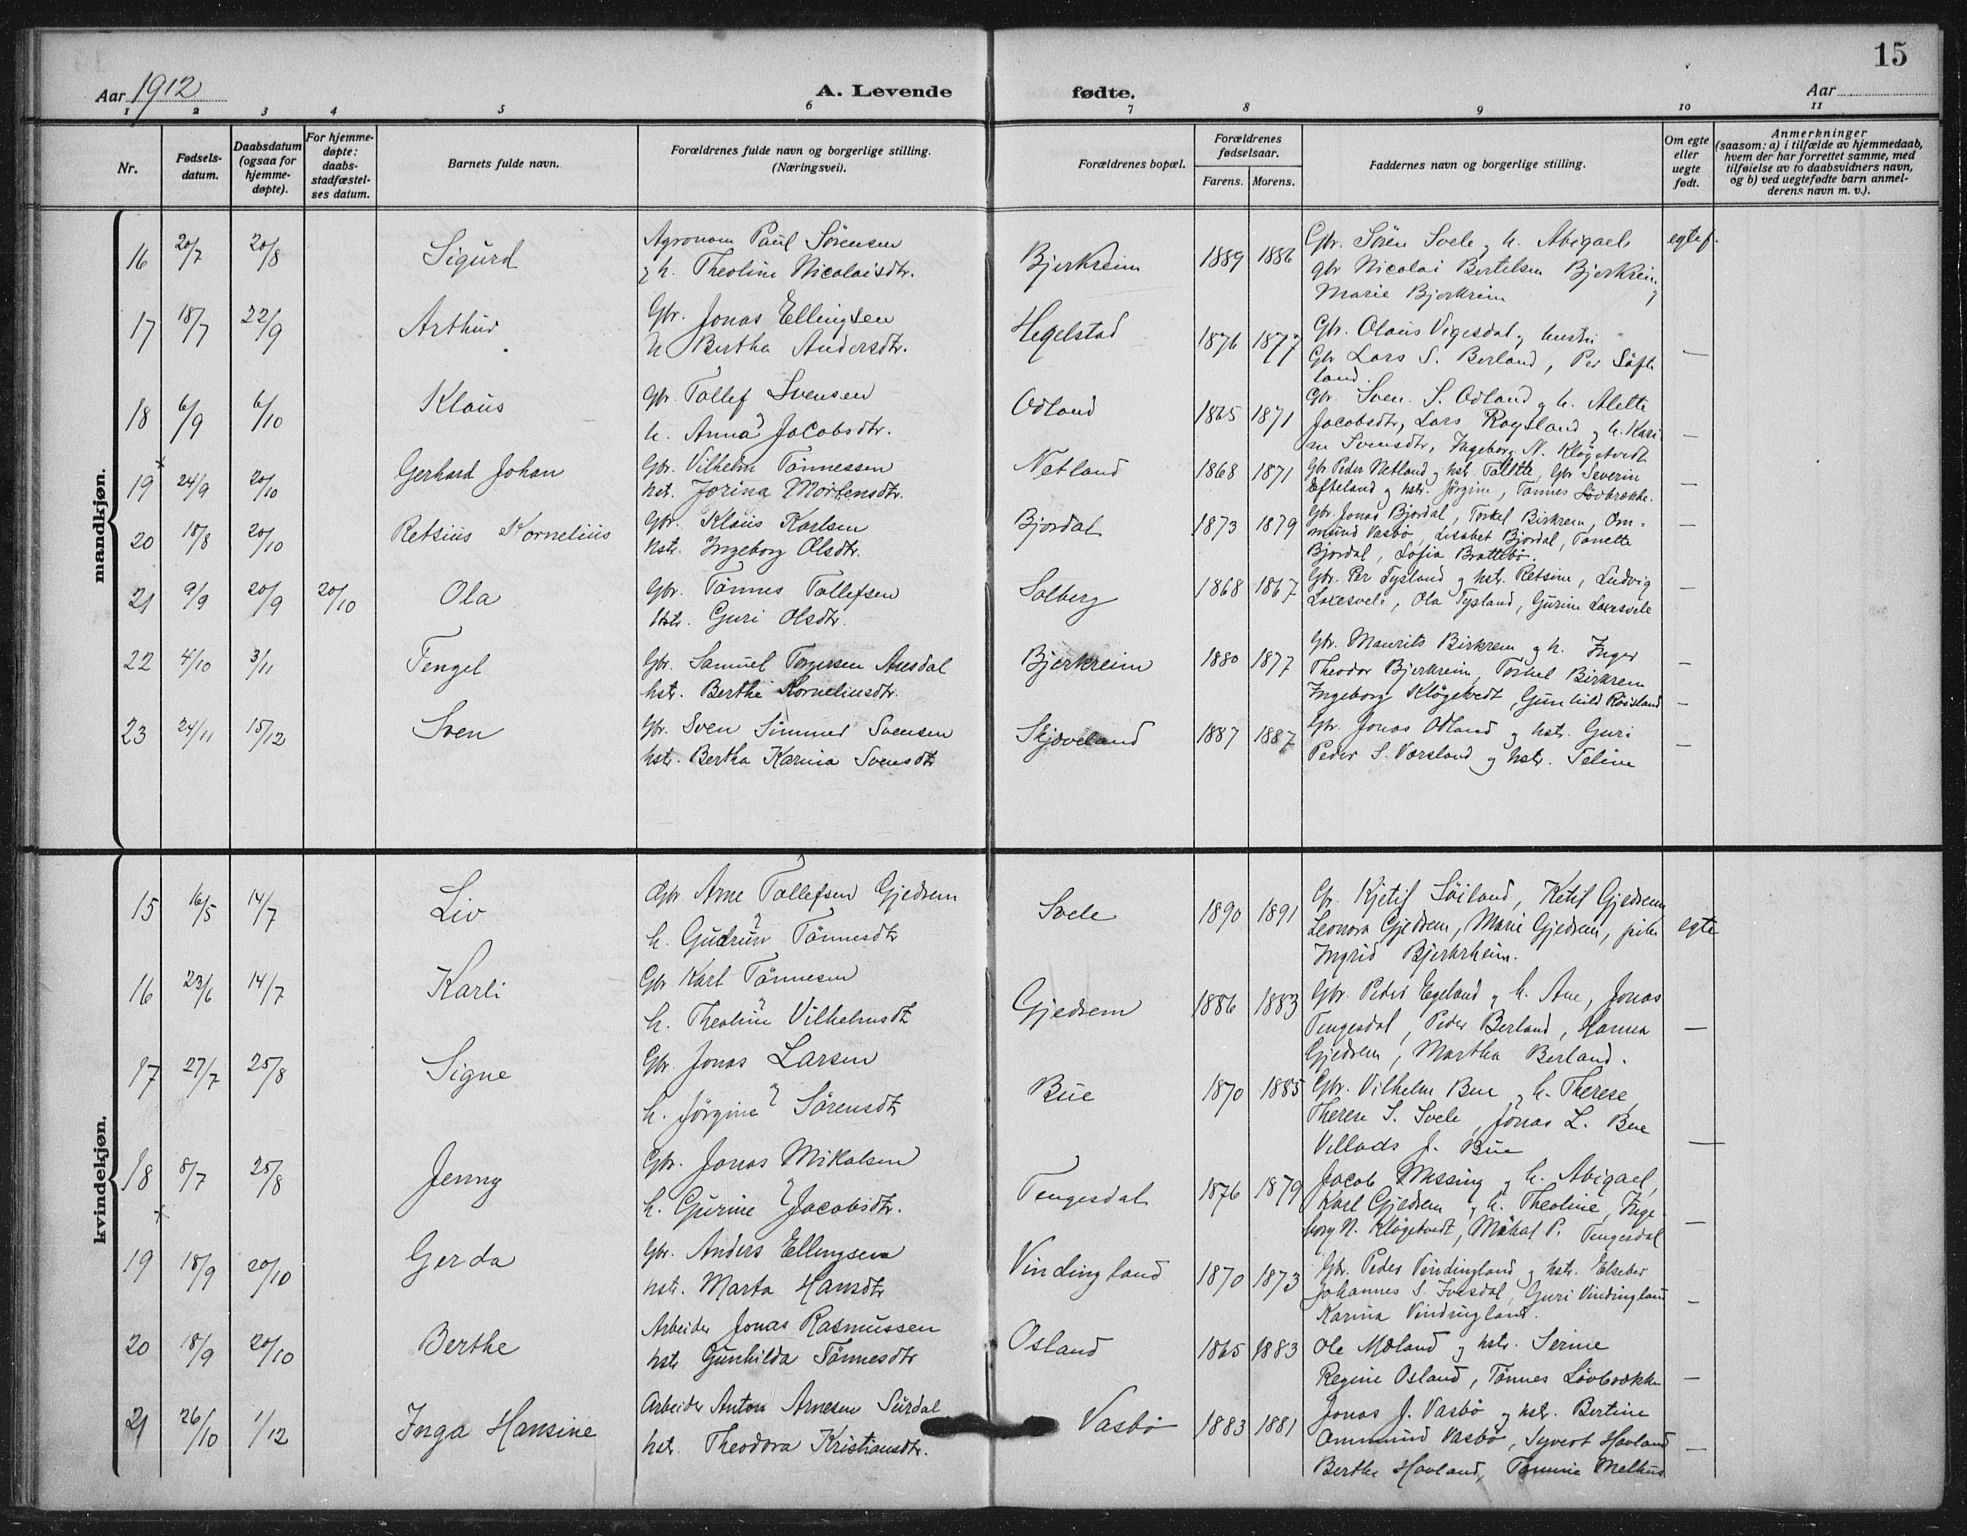 15
Aar 1912
A. Levende
fødte.
Aar
1 2 3 4 5 6 7 8 9 10 11
Nr.
Fødsels-
datum.
Daabsdatum
(ogsaa for
hjemme-
døpte).
For hjemme-
døpte:
daabs-
stadfæstel-
ses datum.
Barnets fulde navn.
Forældrenes fulde navn og borgerlige stilling.
(Næringsvei).
Forældrenes bopæl.
Forældrenes
fødselsaar.
Farens. Morens.
Faddernes navn og borgerlige stilling.
Om egte
eller
uegte
født.
Anmerkninger
(saasom: a) i tilfælde av hjemmedaab,
hvem der har forrettet samme, med
tilføielse av to daabsvidners navn,
og b) ved uegtefødte barn anmel-
derens navn m. v.).
mandkjøn.
16 20/7 20/8 Sigurd
Agronom Paul Sørensen
og h. Theoline Nicolaisdtr.
Bjerkreim 1889 1886
Gbr. Søren Svele og h. Abigael
gbr Nicolai Bertelsen Bjerkreim
Marie Bjerkreim
egtef.
17 18/7 22/9 Arthur
Gbr. Jonas Ellingsen
h Bertha Andersdtr.
Hegelstad 1876 1877
Gbr. Olaus Vigesdal og hustru
Gbr Lars S. Berland, Per Søft
land
—
18 6/9 6/10 Klaus
Gbr. Tollef Svensen
h. Anna Jacobsdtr.
Odland 1865 1871
Gbr. Sven S. Odland og h. Alette
Jacobsdtr, Lars Røysland og h. Kari
n Svensdtr, Ingeborg N. Kløgetvedt
—
19 24/9 20/10 Gerhard Johan
Gbr. Vilhelm Tønnessen
hst. Jorina Mortensdtr.
Netland 1868 1871
Gbr Peder Netland og hst. Talette, Gbr Severin
Efteland og hst. Jørgine, Tønnes Løvbrække.
—
20 18/8 20/10 Retsius Kornelius
Gbr. Klaus Karlsen
hstr. Ingeborg Olsdtr.
Bjordal 1873 1879
Gbr. Jonas Bjordal, Torkel Birkrem, Om-
mund Vasbø, Lisabet Bjordal, Tonette
Bjordal, Sofia Brattebø.
—
21 9/9 20/9 20/10 Ola
Gbr. Tønnes Tollefsen
Hstr. Guri Olsdtr.
Solberg 1868 1867
Gbr. Per Tysland og hstr. Retsine, Ludvig
Laksesvele, Ola Tysland, Gurine Laksesvele
—
22 4/10 3/11 Tengel
Gbr. Samuel Torgersen Ausdal
hstr. Berthe Korneliusdtr.
Bjerkreim 1880 1877
Gbr. Maurits Birkrem og h. Inger
Theodor Bjerkreim, Torkel Birkrem
Ingeborg Kløgetvedt, Gunhild Røisland
—
23 24/11 15/12 Sven
Gbr. Sven Simmed Svensen
hstr. Bertha Karina Svensdtr
Skjæveland 1887 1887
Gbr. Jonas Odland og hstr. Guri
Peder S. Versland og hstr. Teline
—
kvindekjøn.
15 16/5 14/7 Liv
Gbr Arne Tollefsen Gjedrem
h. Gudrun Tønnesdtr
Svele 1890 1891
Gbr. Kjetil Søiland, Ketil Gjedrem
Leonora Gjedrem, Marie Gjedrem, pike
Ingrid Bjerkrheim.
egte
16 23/6 14/7 Karli
Gbr Karl Tønnesen
h. Theoline Vilhelmsdtr
Gjedrem 1886 1883
Gbr. Peder Egeland og h. Ane, Jonas
Tengesdal, Peder Berland, Hanna
Gjedrem, Martha Berland.
—
17 27/7 25/8 Signe
Gbr. Jonas Larsen
h. Jørgine Sørensdtr
Bue 1870 1885
Gbr. Vilhelm Bue og h. Therese,
Therese S. Svele, Jonas L. Bue
Villads J. Bue
—
18 8/7 25/8 Jenny
Gbr. Jonas Mikalsen
h. Gurine Jacobsdtr.
Tengesdal 1876 1879
Jacob Messing og h. Abigael,
Karl Gjedrem og h. Theoline, Inge
borg N. Kløgetvedt, Mikal P. Tengesdal
—
19 18/9 20/10 Gerda
Gbr. Anders Ellingsen
hstr. Marta Hansdtr
Vindingland 1870 1873
Gbr. Peder Vindingland og hstr. Elseber
Johannes S. Ivesdal, Guri Vindingland
Karina Vindingland.
—
20 18/9 20/10 Berthe
Arbeider Jonas Rasmussen
hstr Gunhilda Tønnesdtr
Osland 1865 1883
Ole Mæland og hstr. Serine
Regine Osland, Tønnes Løvbrække
—
21 26/10 1/12 Inga Hansine
Arbeider Anton Arnesen Surdal
hstr. Theodora Kristiansdtr.
Vasbø 1883 1881
Jonas J. Vasbø og hstr. Bertine
Ommund Vasbø, Syvert Hovland
Berthe Hovland, Tomine Melhus
—